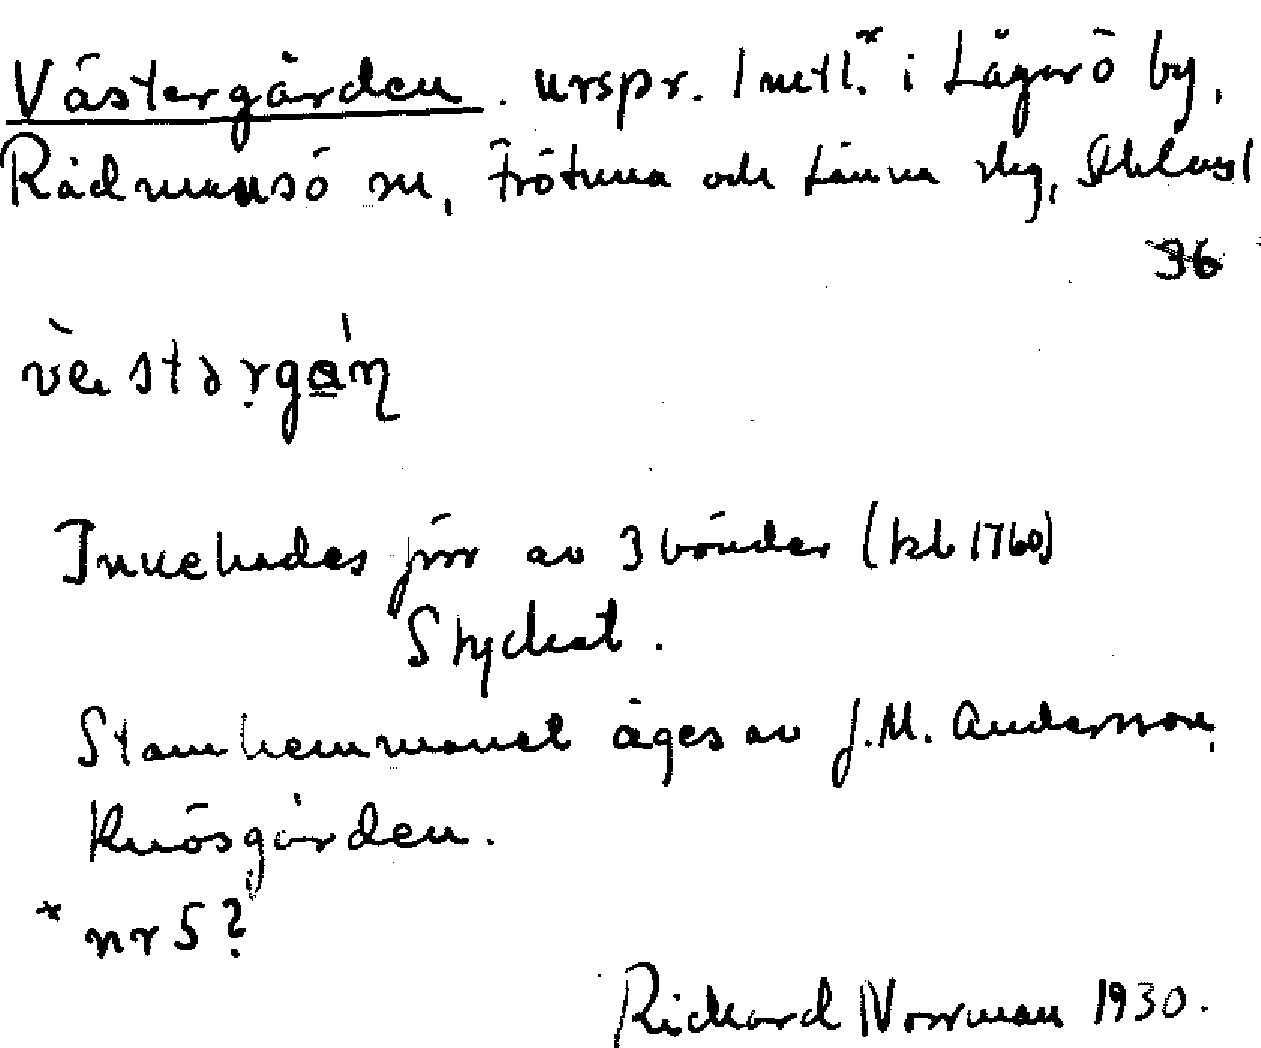 Västergården. urspr. 1 mtl.* i Lågarö by,
Rådmansö sn, Frötuna och Länna skg, Sthlms l
36
Innehades förr av 3 bönder (kb 1760)
Styckat.
Stamhemmanet äges av J.M. Andersson,
Knösgården.
* nr 5?
Rickard Norrman 1930.